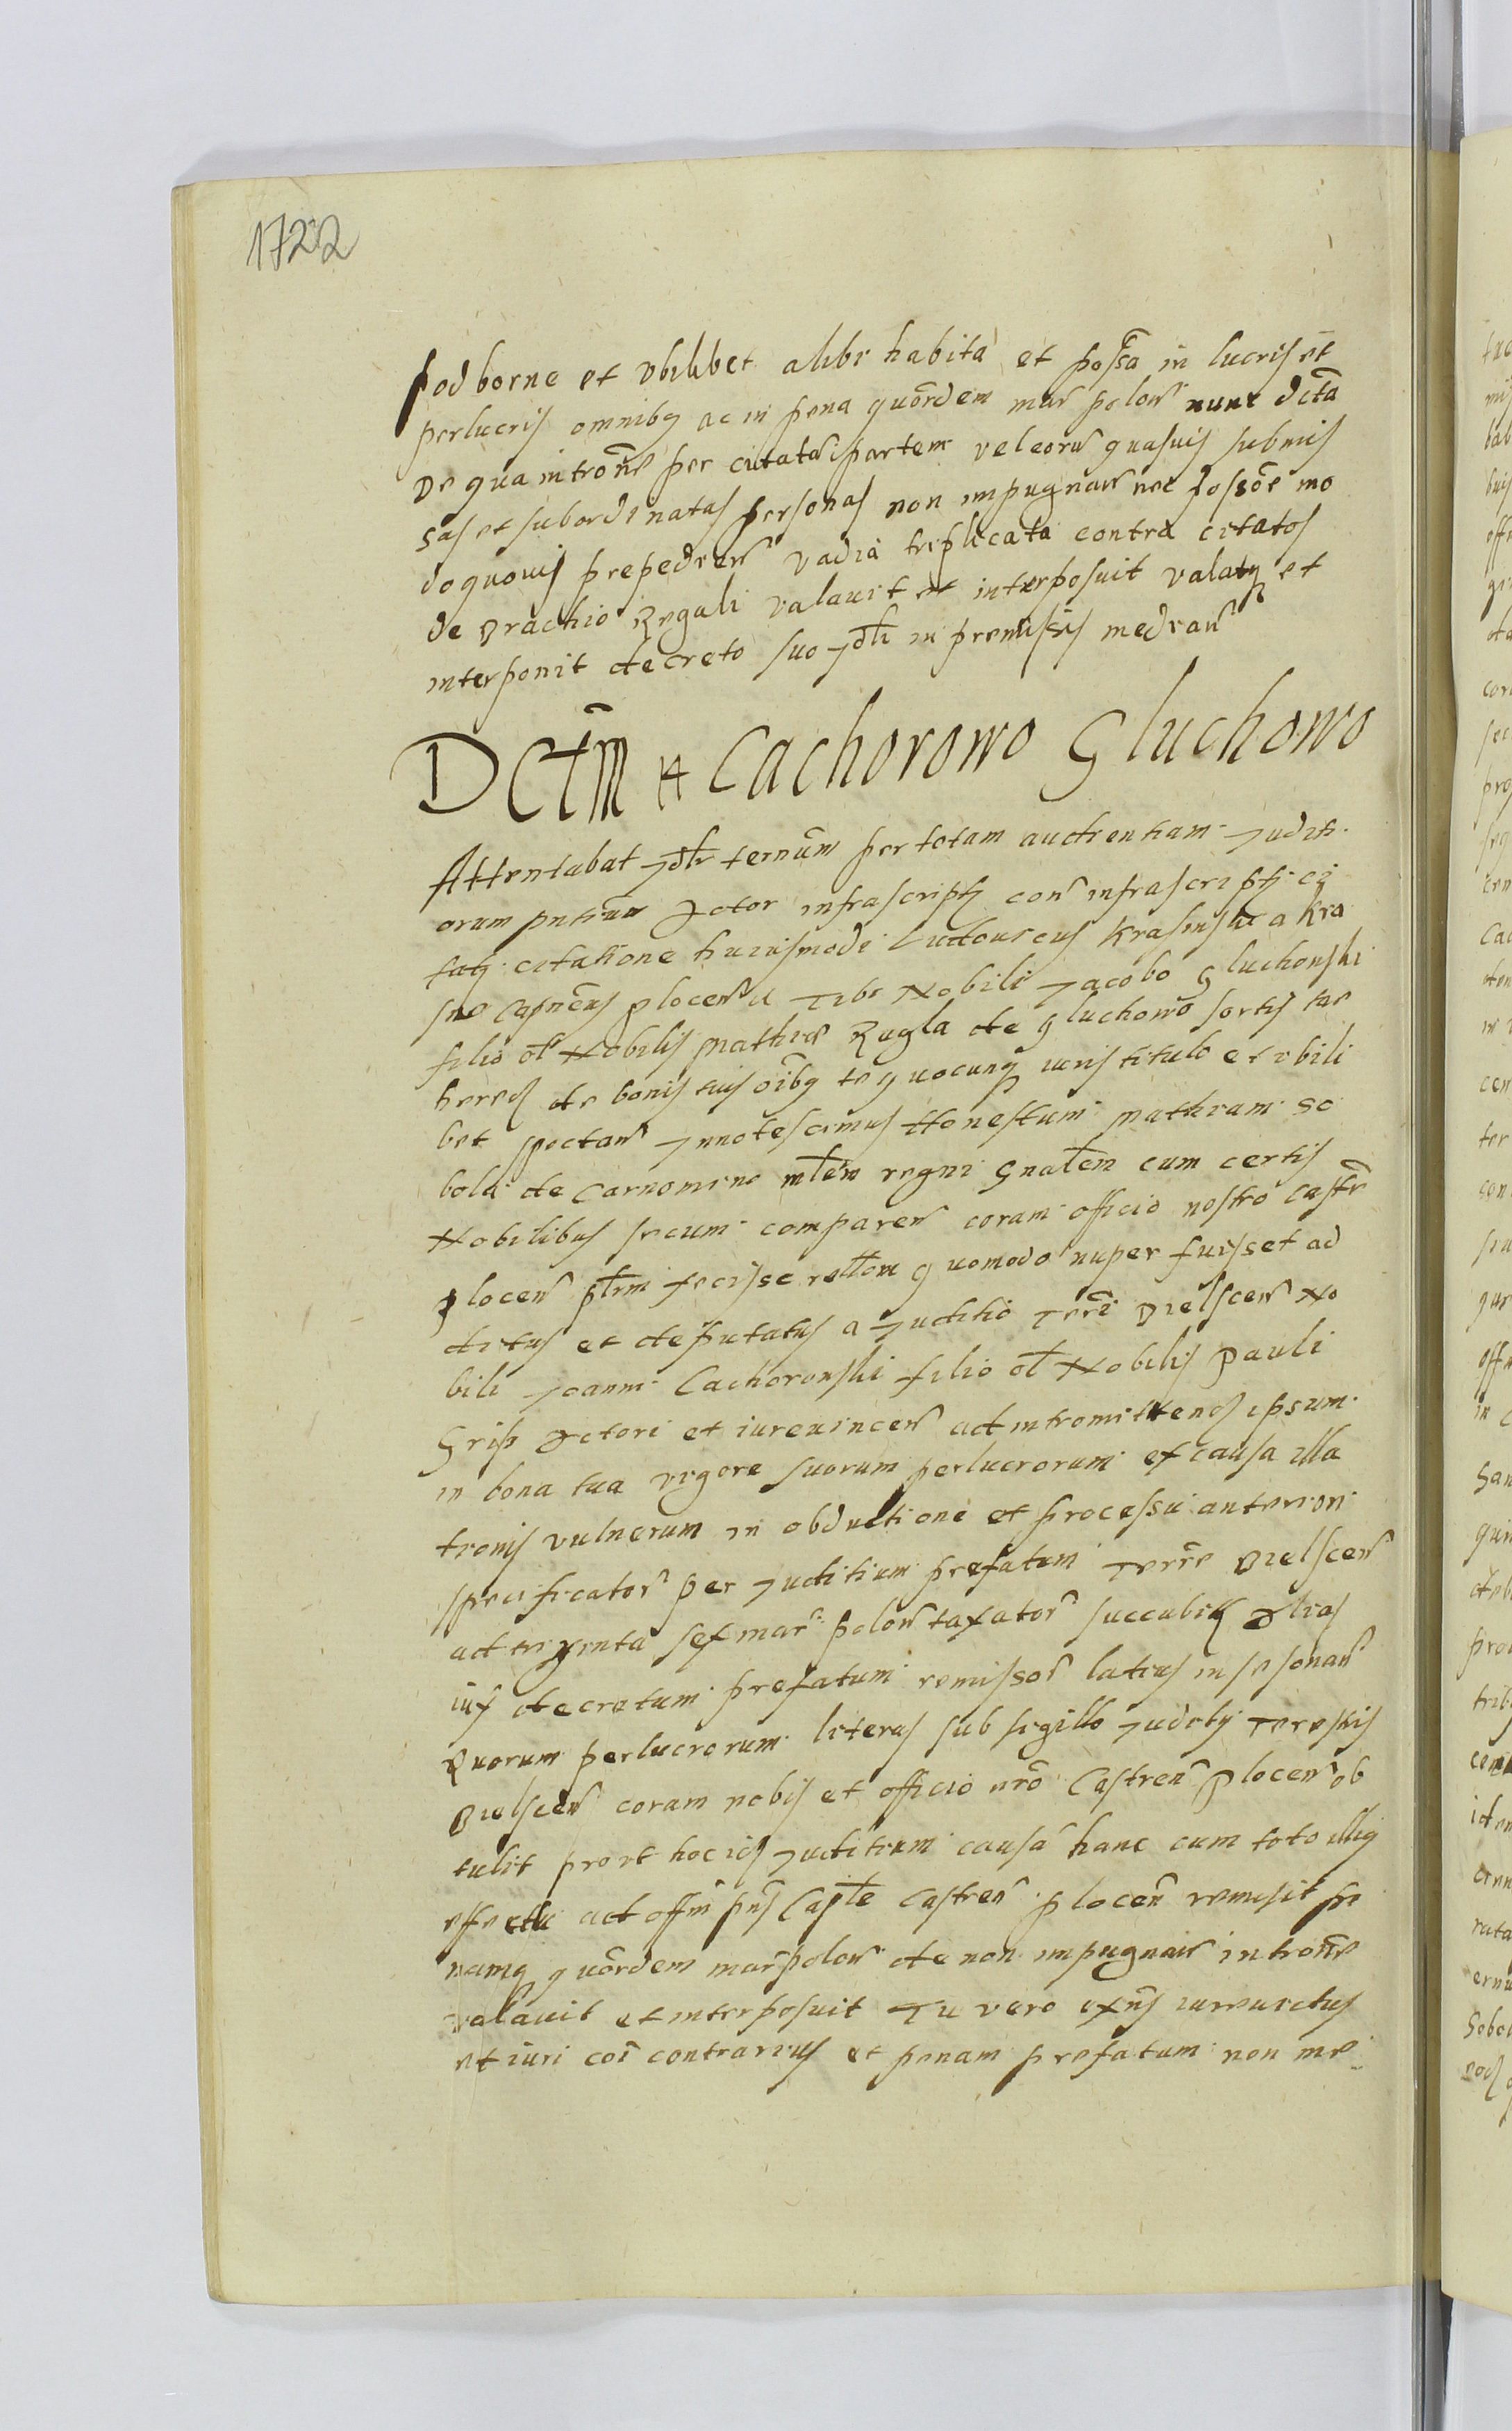 1722
podborne et vbilibet alibi habita et possa in lucris et
perlucris omnibq ac in pena quordem mar polon nunc dicta
De qua introne per citata partem vel eoru quasuis submis
sas et subordinatas personas non impugnan nec possoe mo
do quouis prepedien vadia triplicata contra citatos
de Brachio Regali valauit et interposuit valatq et
interponit decreto suo Jdli in premissis median
Dctm + Cachorowo Gluchowo
Attentabat Jdlr ternum per totam audientiam Judici
orum pntium Actor infrascripts con infrascripts ci
tats citatione huiusmodi Ludouicus Krasinski a Kra
sne Capneus plocen tibi Nobili Jacobo Gluchowski
filio ol Nobilis Mathiae Rugla de Gluchowo sortis tae
hered de bonis tuis oibq te quocunq iuris titulo et vbili
bet spectan Jnnotescimus Honestum Mathiam So
bola de Carnomino mlem regni Gnalem cum certis
Nobilibus secum comparen coram officio nostro castr
plocen plrm fecisse rellom quomodo nuper fuisset ad
ditus et deputatus a Juditio Terri Bielscen No
bili Joanni Cachorowski filio ol Nobilis Pauli
Grip Actori et iureuincen ad intromittend ipsum
in bona tua vigore suorum perlucrorum ex causa illa
tionis vulnerum in obductione et processu anteriori
specificator per Juditium prefatum Terre Bielscen
ad triginta sex mar polon taxator succubit Alias
iux decretum prefatum remissor latius in se sonan
Quorum perlucrorum literas sub sigillo Judcly Terestis
Bielscen coram nobis et officio nro Castren plocen ob
tulit prout hoc ids Juditium causa hanc cum toto illiq
effectu ad offm pns Caple castren plocen remisit pe
namq quordem mar polon de non impugnan introne
valauit et interposuit Tu vero exns iureuictus
et iuri coi contrarius et penam prefatum non me